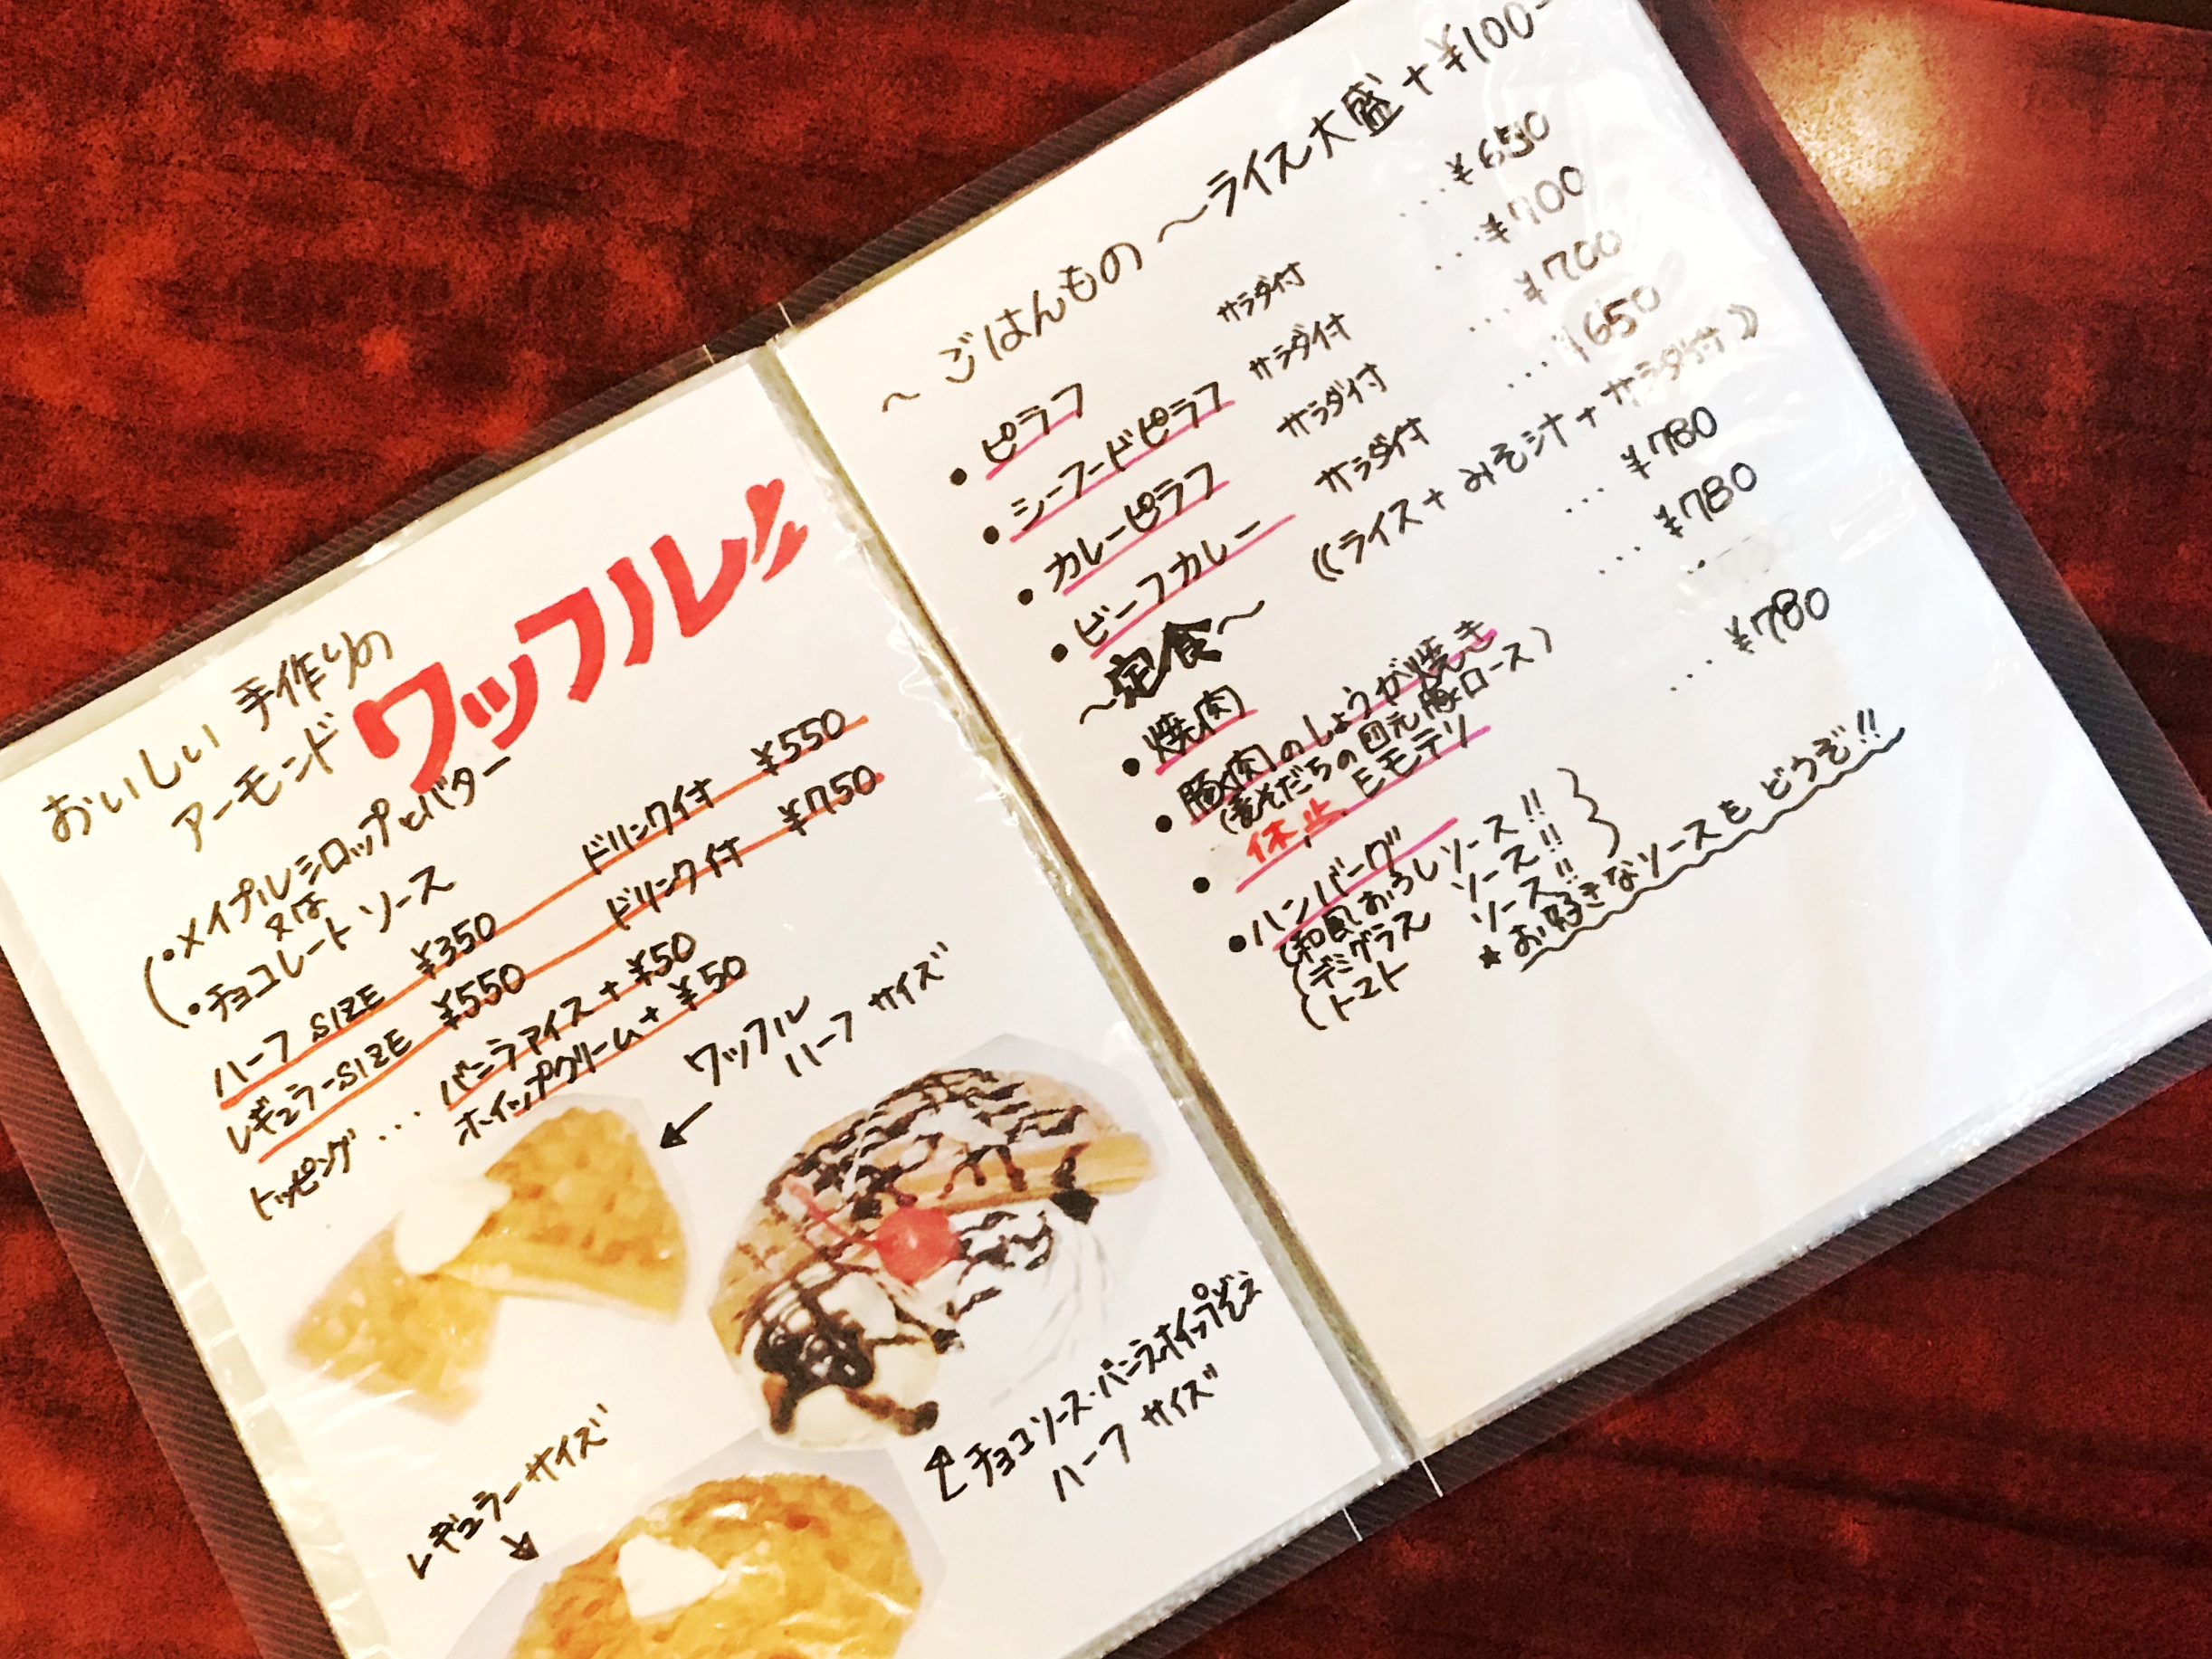 おいしい 手作りの
アーモンド ワッフル
(•メイプルシロップとバター
又は
(•チョコレートソース
ハーフSIZE ¥350 ドリンク付 ¥550
レギュラーSIZE ¥550 ドリンク付 ¥750
トッピング... バニラアイス+¥50
ホイップクリーム+¥50
← ワッフル
ハーフサイズ
チョコソース・バニラホイップぞえ
ハーフサイズ
レギュラーサイズ
↓
～ごはんもの～ライス大盛+¥100-
•ピラフ サラダ付 ...¥650
•シーフードピラフ サラダ付 ...¥700
•カレーピラフ サラダ付 ...¥700
•ビーフカレー サラダ付 ...¥650
～定食～ 《ライス+みそ汁+サラダ付》
•焼肉 ...¥780
•豚肉のしょうが焼き ...¥780
(麦そだちの四元豚ロース)
•休止 ミモデリ
•ハンバーグ ...¥780
(和風おろしソース!!
(デミグラス ソース!!
(トマト ソース!!
★お好きなソースをどうぞ!!